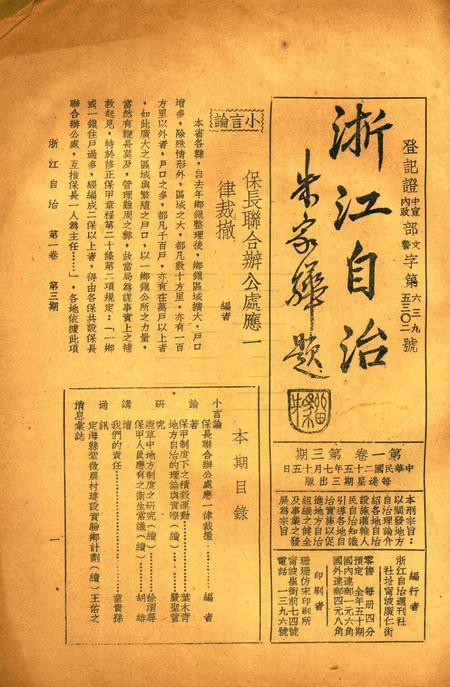 登記證 中宣部文字第六三九號
內政警五三〇二
浙江自治
朱家驊題
第一卷 第三期
中華民國二十五年七月十五日
每逢星期三出版
本刊宗旨:
以闡發地方
自治理論介
紹各地自治
設施灌輸人
民自治知識
引導各地自
治實施以促
進地方自治
組織之健全
及事業之發
展為宗旨
編行者
浙江自治週刊社
社址寧波廣仁街
零售 每冊四分
預定 全年五十期
國內連郵一元六角
國外連郵四元八角
印刷者
珊珊仿宋印刷所
寧波崔衙前七四號
電話一三九六號
小言論
保長聯合辦公處應一
律裁撤
編者
本省各縣,自去年鄉鎮整理後,鄉鎮區域擴大,戶口
增多,除殊情形外,區域之大,都凡數十方里,亦有一百
方里以外者,戶口之多,都凡千百戶,亦有在萬戶以上者
,如此廣大之區域與繁殖之戶口,以一鄉鎮公所之力量,
當然有鞭長莫及,管理難周之弊,故當局為謀事實上之補
救起見,特於修正保甲章程第二十條第二項規定:「一鄉
或一鎮住戶過多,經編成二保以上者,得由各保共設保長
聯合辦公處,互推保長一人為主任……」,各地依據此項
浙江自治 第一卷 第三期
本期目錄
小言論
保長聯合辦公處應一律裁撤……編者
論著
保甲制度下之積穀運動……葉木青
地方自治的理論與實際(續)……嚴聖萱
研究
憲草中地方制度之研究(續)……徐淵導
保甲人員應有之衛生常識(續)……胡雄
講壇
我們的責任……童貴孫
通訊
定海縣紫微農村建設實驗鄉計劃(續)王佑之
消息彙誌
一